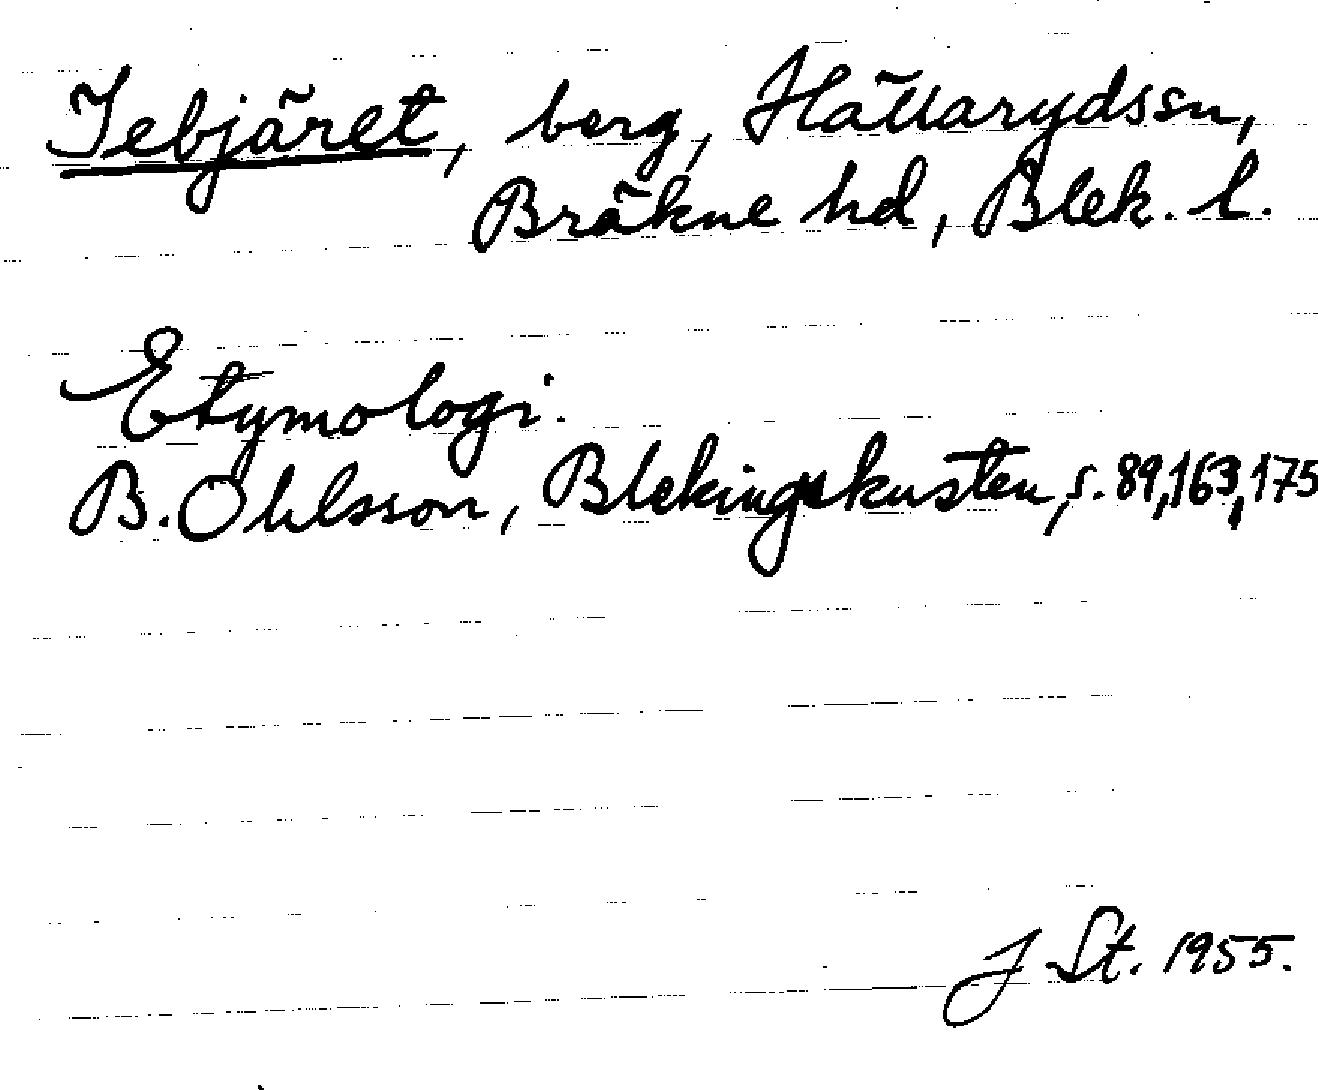 Iebjäret, berg, Hällarydssn,
Bräkne hd, Blek. l.
Etymologi.
B. Ohlsson, Blekingskusten, s. 89, 163, 175
J St. 1955.